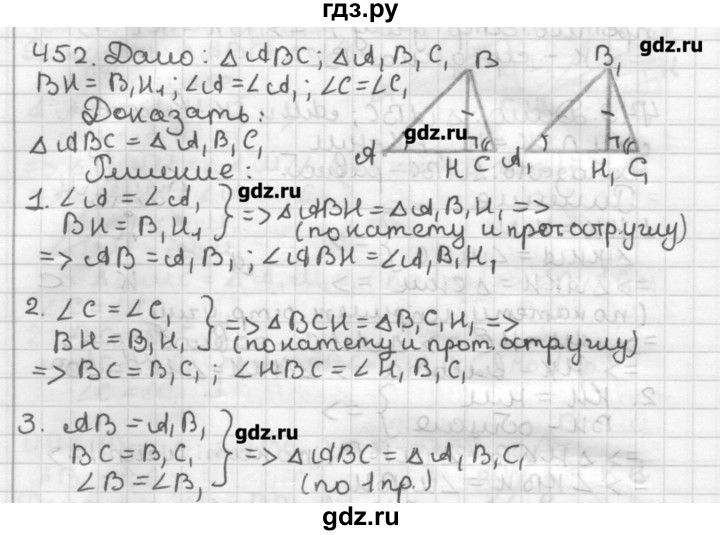 гдз.ру
452. Дано: △ABC; △A₁B₁C₁
BH = B₁H₁; ∠A = ∠A₁; ∠C = ∠C₁
Доказать:
△ABC = △A₁B₁C₁
Решение:
B
B₁
gdz.ru
gdz.ru
A
H
C
A₁
H₁
C₁
1. ∠A = ∠A₁
BH = B₁H₁ } => △ABH = △A₁B₁H₁ =>
gdz.ru
(по катету и прот. остр. углу)
=> AB = A₁B₁; ∠ABH = ∠A₁B₁H₁
2. ∠C = ∠C₁
BH = B₁H₁ } => △BCH = △B₁C₁H₁ =>
(по катету и прот. остр. углу)
=> BC = B₁C₁; ∠HBC = ∠H₁B₁C₁
3. AB = A₁B₁
BC = B₁C₁
∠B = ∠B₁ } => △ABC = △A₁B₁C₁
gdz.ru
(по 1 пр.)
gdz.ru